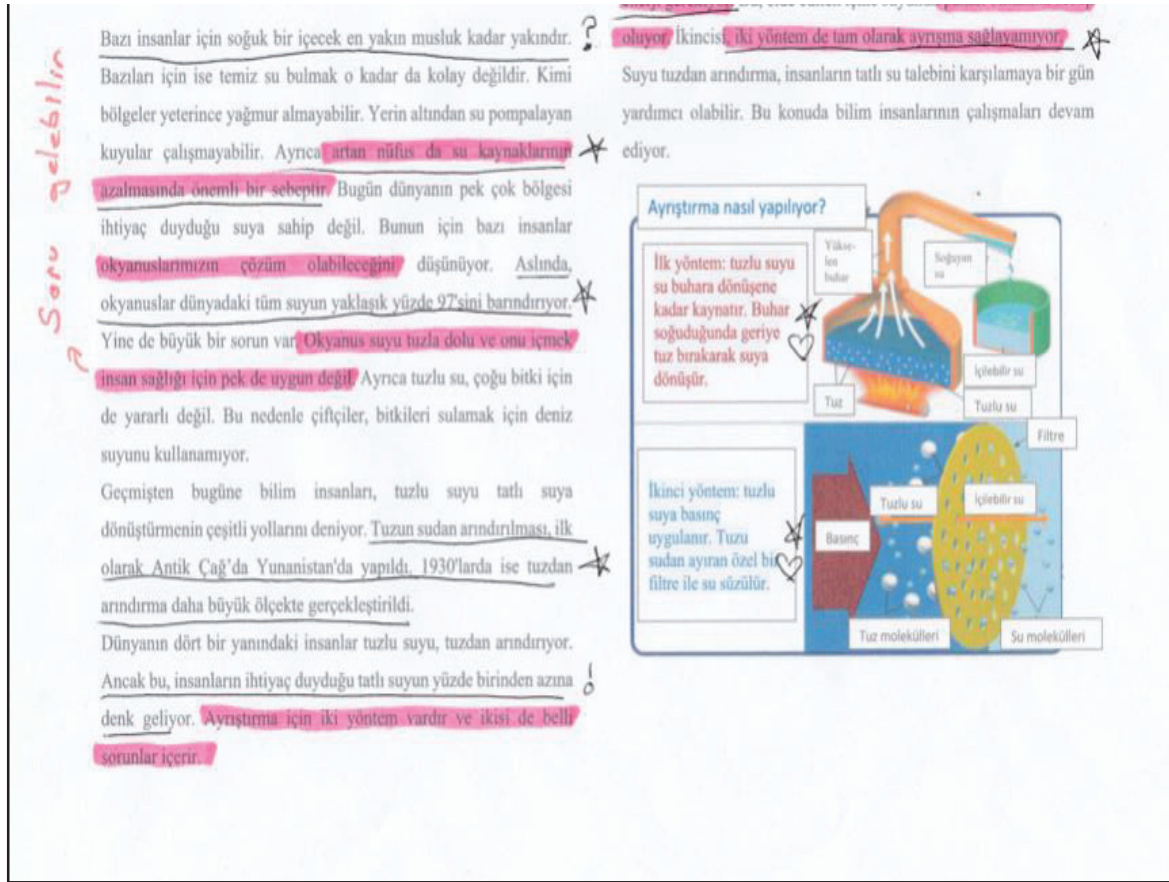 Soru gelebilir
Bazı insanlar için soğuk bir içecek en yakın musluk kadar yakındır. ?
Bazıları için ise temiz su bulmak o kadar da kolay değildir. Kimi
bölgeler yeterince yağmur almayabilir. Yerin altından su pompalayan
kuyular çalışmayabilir. Ayrıca artan nüfus da su kaynaklarının
azalmasında önemli bir sebeptir. Bugün dünyanın pek çok bölgesi
ihtiyaç duyduğu suya sahip değil. Bunun için bazı insanlar
okyanuslarımızın çözüm olabileceğini düşünüyor. Aslında,
okyanuslar dünyadaki tüm suyun yaklaşık yüzde 97'sini barındırıyor.
Yine de büyük bir sorun var. Okyanus suyu tuzla dolu ve onu içmek
insan sağlığı için pek de uygun değil. Ayrıca tuzlu su, çoğu bitki için
de yararlı değil. Bu nedenle çiftçiler, bitkileri sulamak için deniz
suyunu kullanamıyor.
Geçmişten bugüne bilim insanları, tuzlu suyu tatlı suya
dönüştürmenin çeşitli yollarını deniyor. Tuzun sudan arındırılması, ilk
olarak Antik Çağ'da Yunanistan'da yapıldı. 1930'larda ise tuzdan
arındırma daha büyük ölçekte gerçekleştirildi.
Dünyanın dört bir yanındaki insanlar tuzlu suyu, tuzdan arındırıyor.
Ancak bu, insanların ihtiyaç duyduğu tatlı suyun yüzde birinden azına !
denk geliyor. Ayrıştırma için iki yöntem vardır ve ikisi de belli
sorunlar içerir.
oluyor. İkincisi, iki yöntem de tam olarak ayrışma sağlayamıyor.
Suyu tuzdan arındırma, insanların tatlı su talebini karşılamaya bir gün
yardımcı olabilir. Bu konuda bilim insanlarının çalışmaları devam
ediyor.
Ayrıştırma nasıl yapılıyor?
İlk yöntem: tuzlu suyu
su buhara dönüşene
kadar kaynatır. Buhar
soğuduğunda geriye
tuz bırakarak suya
dönüşür.
Yükse-
len
buhar
Soğuyan
su
İçilebilir su
Tuz
Tuzlu su
İkinci yöntem: tuzlu
suya basınç
uygulanır. Tuzu
sudan ayıran özel bir
filtre ile su süzülür.
Filtre
Tuzlu su
İçilebilir su
Basınç
Tuz molekülleri
Su molekülleri